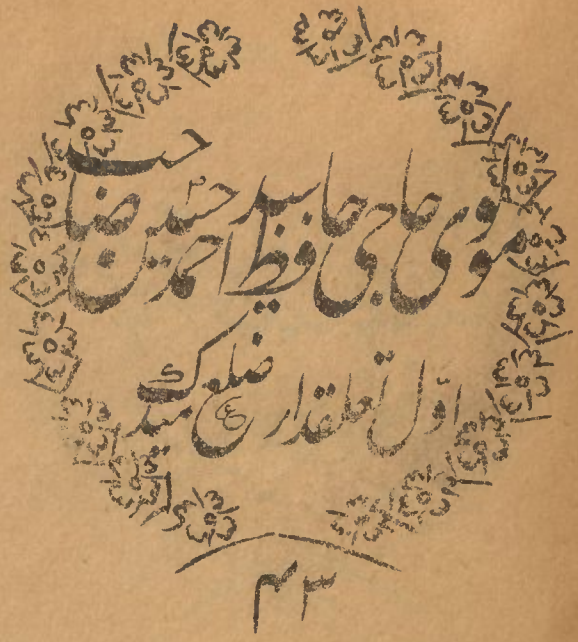 مولوی حاجی حافظ سید احمد حسین صاحب
اوّل تعلقدار ضلع میدک
۴۳